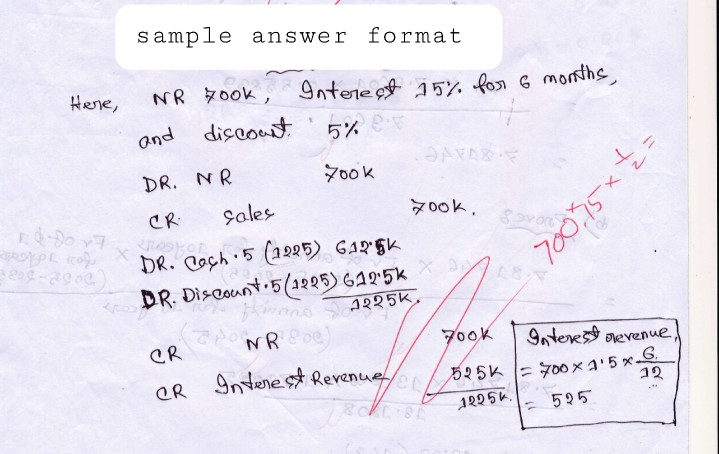 sample answer format
Here, NR 700k, Interest 15% for 6 months,
and discount 5%
DR. NR 700k
CR. Sales 700k.
DR. Cash .5 (1225) 612.5k
DR. Discount .5 (1225) 612.5k
1225k.
CR NR 700k
CR Interest Revenue 525k
1225k.
Interest revenue,
= 700 × 1.5 × 6/12
= 525